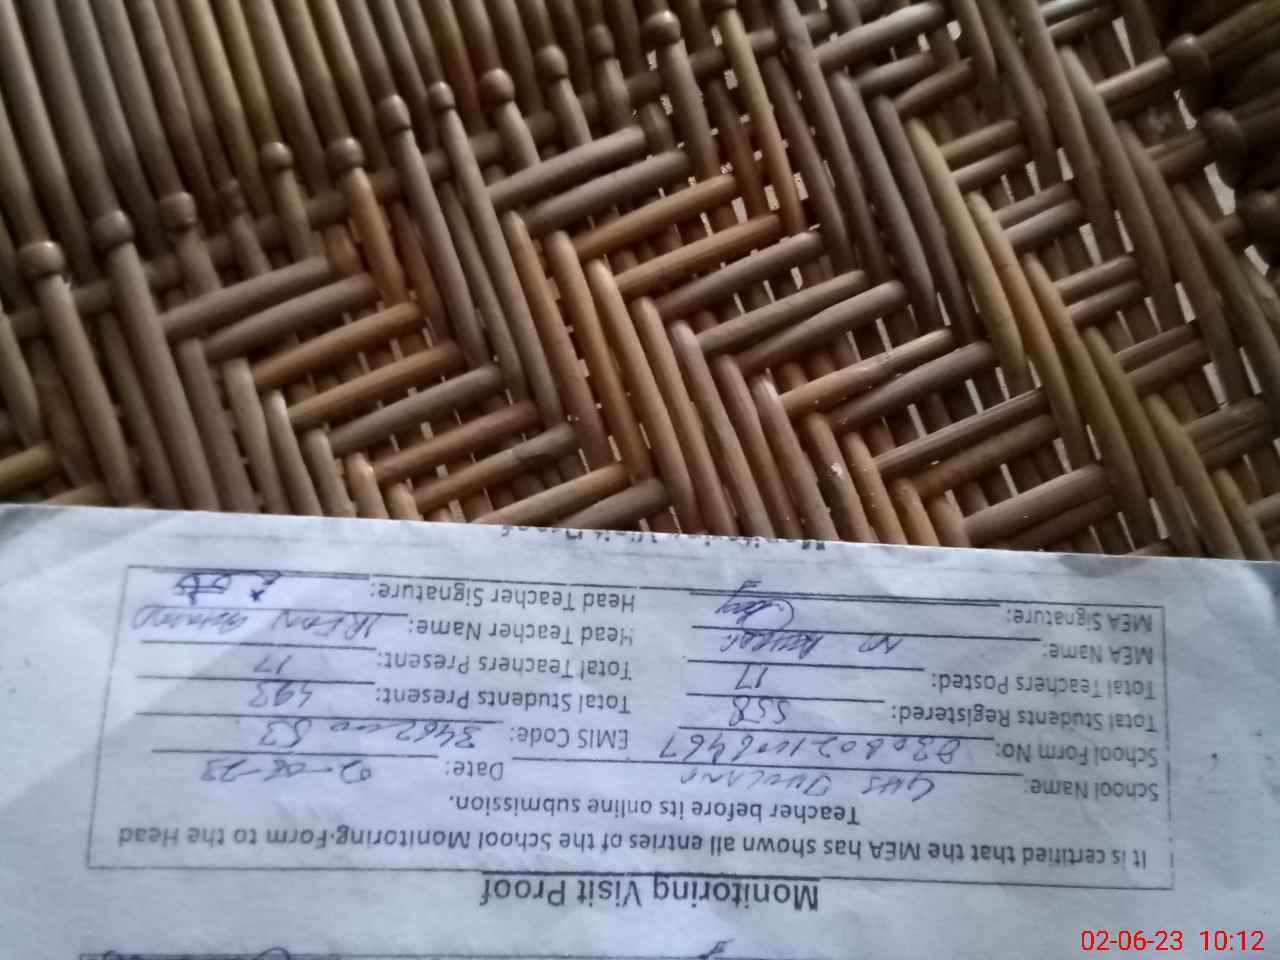 Monitoring Visit Proof
It is certified that the MEA has shown all entries of the School Monitoring Form to the Head
Teacher before its online submission.
School Name: GHS Date: 02-06-23
School Form No: EMIS Code:
Total Students Registered: 558 Total Students Present: 493
Total Teachers Posted: 17 Total Teachers Present: 17
MEA Name: Head Teacher Name: IRFAN
MEA Signature: Head Teacher Signature:
02-06-23 10:12